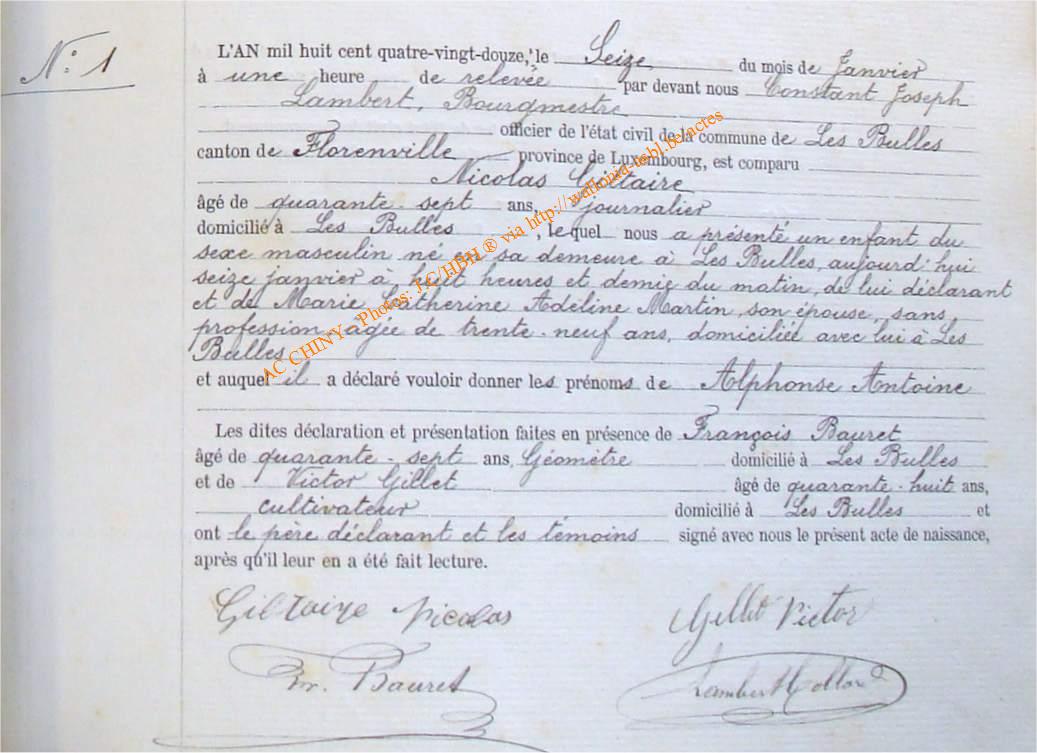 N° 1
L'AN mil huit cent quatre-vingt-douze, le Seize du mois de Janvier
à une heure de relevée par devant nous Constant Joseph
Lambert, Bourgmestre
officier de l'état civil de la commune de Les Bulles
canton de Florenville province de Luxembourg, est comparu
Nicolas Giltaire
âgé de quarante-sept ans, journalier
domicilié à Les Bulles, lequel nous a présenté un enfant du
sexe masculin né en sa demeure à Les Bulles, aujourd'hui
seize janvier à huit heures et demie du matin, de lui déclarant
et de Marie Catherine Adéline Martin, son épouse, sans
profession, agée de trente-neuf ans, domiciliée avec lui à Les
Bulles
et auquel il a déclaré vouloir donner les prénoms de Alphonse Antoine
Les dites déclaration et présentation faites en présence de François Bauret
âgé de quarante-sept ans, Géomètre domicilié à Les Bulles
et de Victor Gillet âgé de quarante-huit ans,
cultivateur domicilié à Les Bulles et
ont le père déclarant et les témoins signé avec nous le présent acte de naissance,
après qu'il leur en a été fait lecture.
Giltaire Nicolas
Gillet Victor
Fr. Bauret
Lambert
AC CHINY - Photos: J.C/HBH ® via http://wallonia-nebl.be/actes